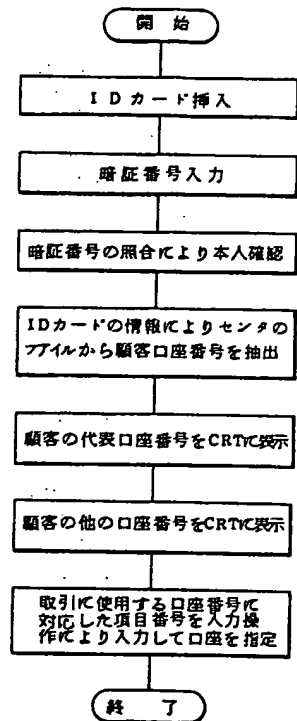 開始
IDカード挿入
暗証番号入力
暗証番号の照合により本人確認
IDカードの情報によりセンタの
ファイルから顧客口座番号を抽出
顧客の代表口座番号をCRTに表示
顧客の他の口座番号をCRTに表示
取引に使用する口座番号に
対応した項目番号を入力操
作により入力して口座を指定
終了